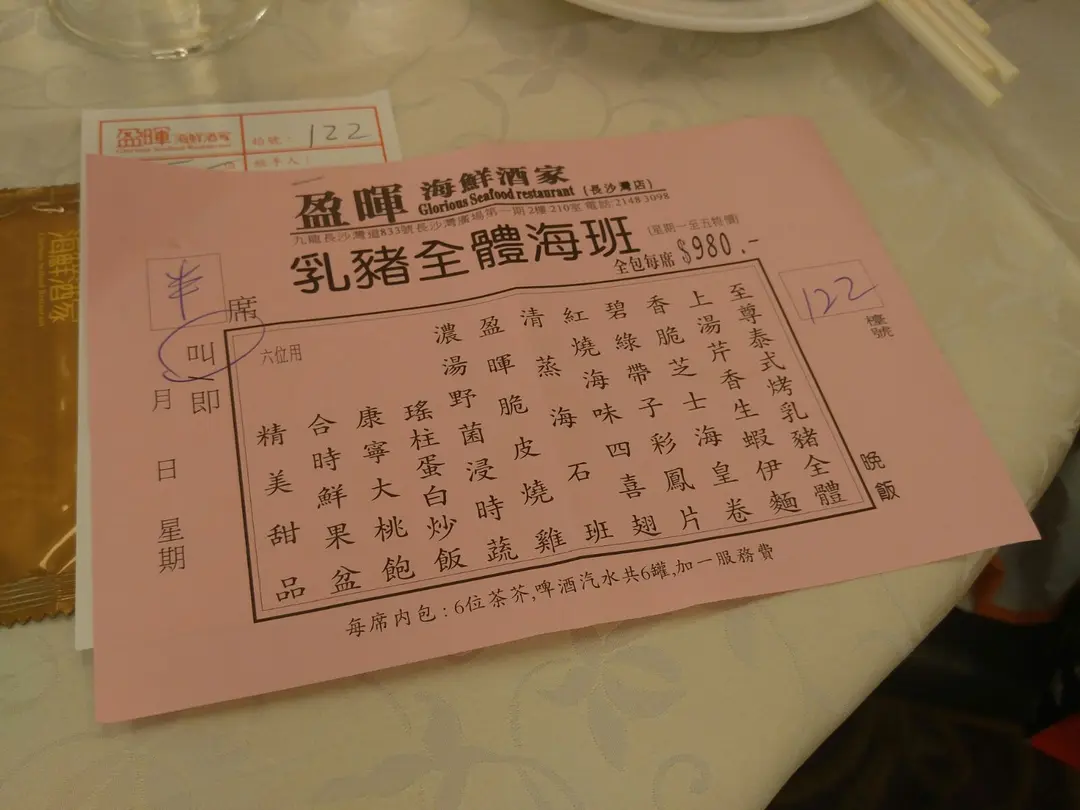 盈暉 海鮮酒家
Glorious Seafood Restaurant
枱號：122
經手人：
海鮮酒家
盈暉 海鮮酒家
Glorious Seafood restaurant (長沙灣店)
九龍長沙灣道833號長沙灣廣場第一期2樓210室 電話:2148 3098
乳豬全體海班
(星期一至五特價)
全包每席 $980.-
半 席
叫即
月 日 星期
122
檯號
晚飯
六位用
至尊泰式烤乳豬全體
上湯芹香生蝦伊麵
香脆芝士海皇卷
碧綠帶子彩鳳片
紅燒海味四喜翅
清蒸海石班
盈暉脆皮燒雞
濃湯野菌浸時蔬
瑤柱蛋白炒飯
康寧大桃飽
合時鮮果盆
精美甜品
每席內包:6位茶芥,啤酒汽水共6罐,加一服務費